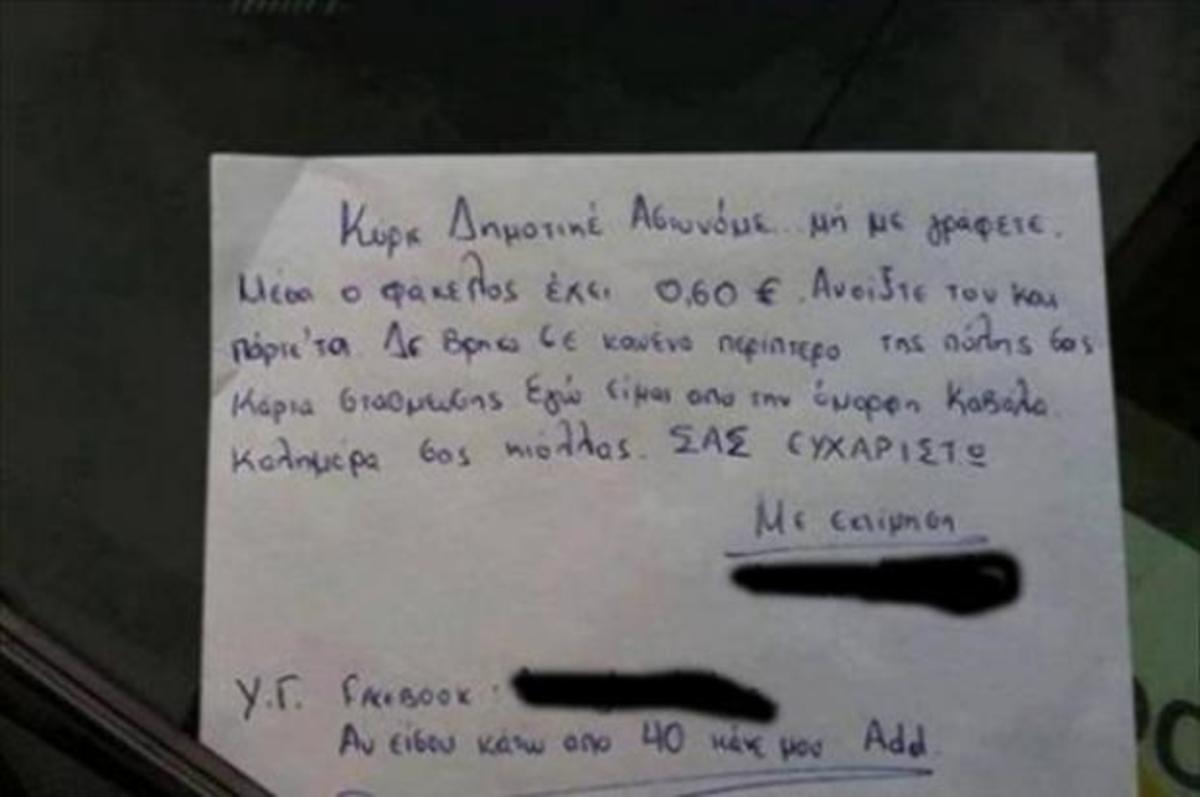 Κύριε Δημοτικέ Αστυνόμε.. μή με γράφετε.
Μέσα ο φάκελος έχει 0,60 €. Ανοίξτε τον και
πάρτε'τα. Δε βρήκα σε κανένα περίπτερο της πόλης σας
Κάρτα στάθμευσης Εγώ είμαι απο την όμορφη Καβάλα.
Καλημέρα σας κιόλλας. ΣΑΣ ΕΥΧΑΡΙΣΤΩ
Με εκτίμηση
Υ.Γ. FACEBOOK :
Αν είσαι κάτω απο 40 κάνε μου Add